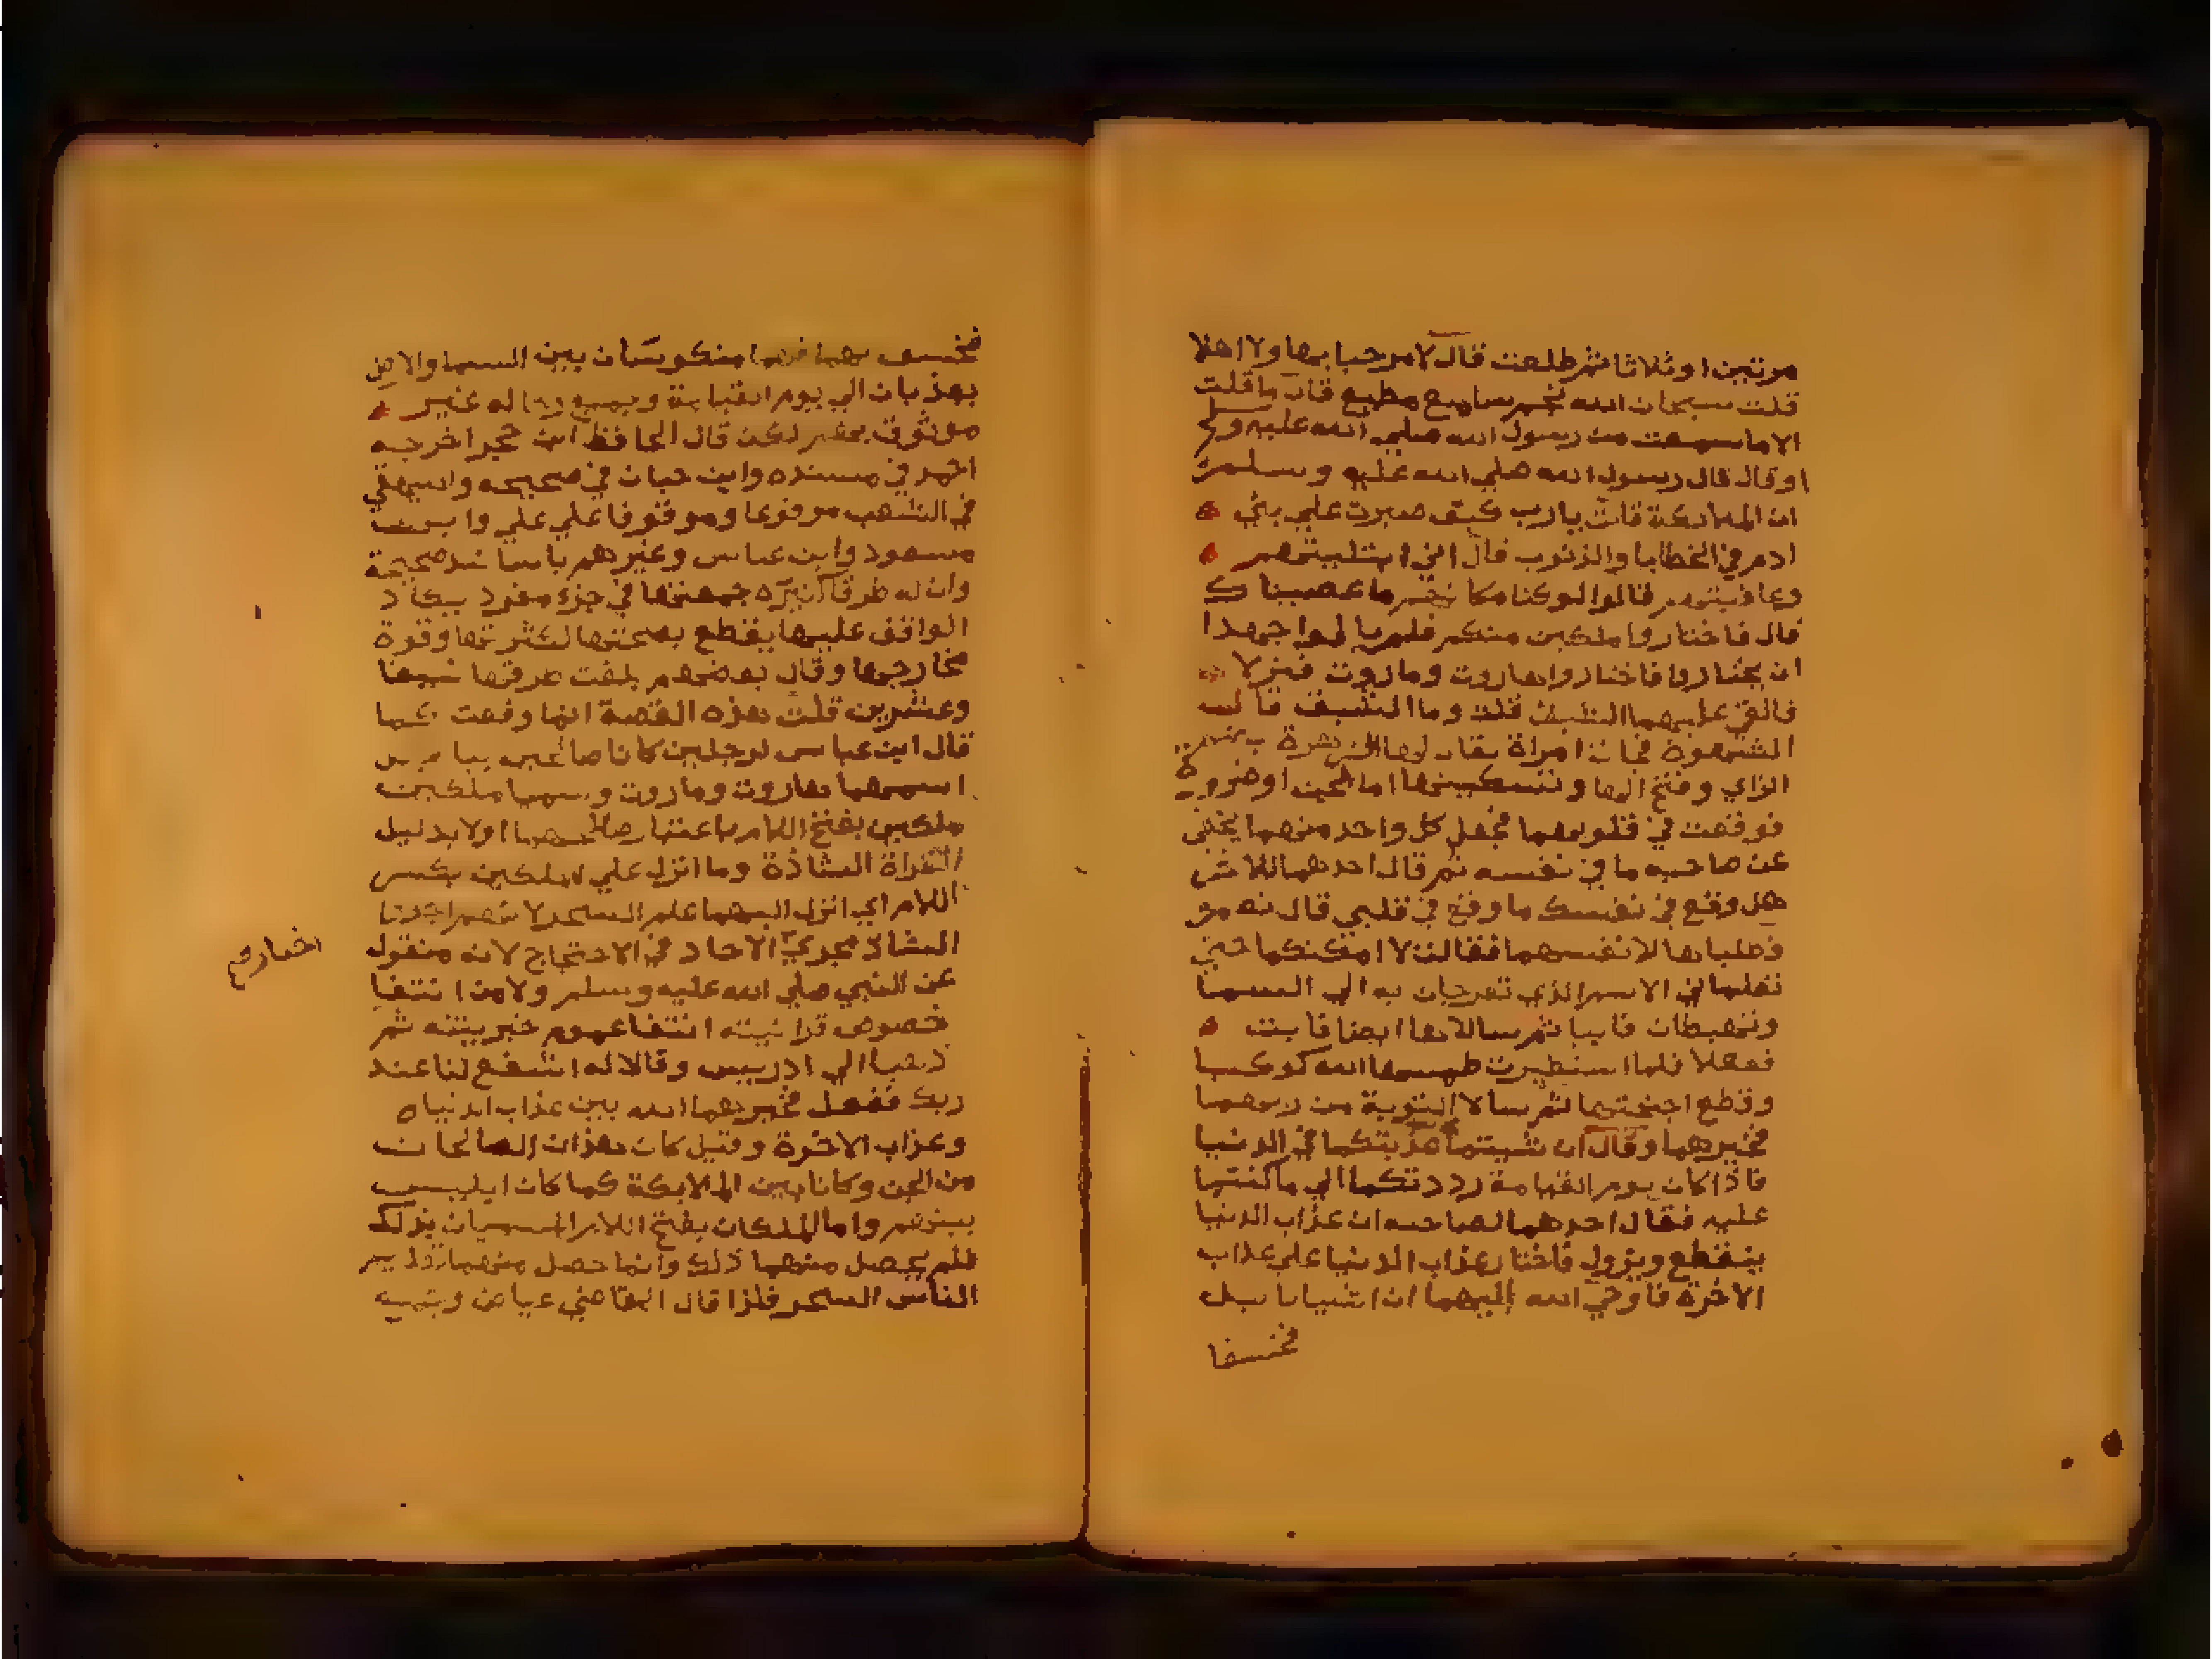 مرتين او ثلاثا ثم طلعت قال لا مرحبا بها ولا اهلا
قلت سبحان الله نجم سامع مطيع قال ما قلت
الا ما سمعت من رسول الله صلي الله عليه وسلم
او قال قال رسول الله صلي الله عليه وسلم
ان الملايكة قالت يا رب كيف صبرت علي بني
ادم في الخطايا والذنوب قال اني ابتليتهم
وعافيتهم قالوا لو كنا مكانهم ما عصيناك
قال فاختاروا ملكين منكم فلم يالوا جهدا
ان يختاروا فاختاروا هاروت وماروت فنزلا
فالقي عليهما الشبق قلت وما الشبق قال
الشهوة فجات امراة يقال لها الزهرة
الزاي وفتح الها وتسكينها اما لحن او ضرورة
فوقعت في قلوبهما فجعل كل واحد منهما يخفي
عن صاحبه ما في نفسه ثم قال احدهما للاخر
هل وقع في نفسك ما وقع في قلبي قال نعم
فطلباها لانفسهما فقالت لا امكنكما حتي
تعلماني الاسم الذي تعرجان به الي السما
وتهبطان فابيا ثم سالاها ايضا فابت
ففعلا فلما استطيرت طمسها الله كوكبا
وقطع اجنحتها ثم سالا التوبة من ربهما
فخيرهما وقال ان شيتما عذبتكما في الدنيا
فاذا كان يوم القيامة رددتكما الي ما كنتما
عليه فقال احدهما لصاحبه ان عذاب الدنيا
ينقطع ويزول فاختارا عذاب الدنيا علي عذاب
الاخرة فاوحي الله اليهما ان اتيا بابل
فخسفا
فخسف بهما فهما منكوسان بين السما والارض
يعذبان الي يوم القيامة وجميع رجاله غير
موثوق بهم لكن قال الحافظ ابن حجر اخرجه
احمد في مسنده وابن حبان في صحيحه والبيهقي
في الشعب مرفوعا وموقوفا علي علي وابن
مسعود وابن عباس وغيرهم باسانيد صحيحة
وان له طرقا كثيرة جمعتها في جزء مفرد يكاد
الواقف عليها يقطع بصحتها لكثرتها وقوة
مخارجها وقال بعضهم بلغت طرقها نيفا
وعشرين قلت هذه القصة انها وقعت كما
قال ابن عباس لرجلين كانا صالحين ببابل
اسمهما هاروت وماروت وسميا ملكين
ملكين بفتح اللام باعتبار صلاحهما اولا بدليل
القراة الشاذة وما انزل علي الملكين بكسر
اللام اي انزل اليهما علم السحر لانهم اجروا
الشاذ مجري الاحاد في الاحتجاج لانه منقول
عن النبي صلي الله عليه وسلم ولا من انتفا
خصوص قرانيته انتفا عموم خبريته ثم
ذهبا الي ادريس وقالا له اشفع لنا عند
ربك ففعل فخيرهما الله بين عذاب الدنيا
وعذاب الاخرة وقيل كان هذان الصالحان
من الجن وكانا بين الملايكة كما كان ابليس
بينهم واما الملكان بفتح اللام المسميان بذلك
فلم يحصل منهما ذلك وانما حصل منهما
الناس السحر فلذا قال القاضي عياض وتنبيه
اخبارهم